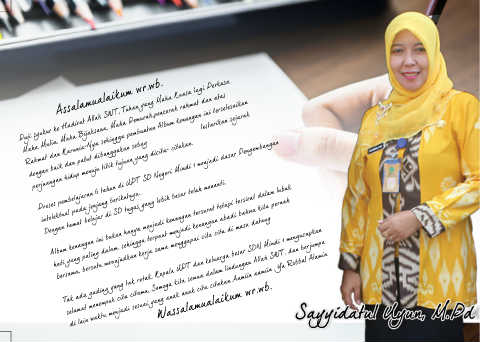 Assalamualaikum wr.wb.
Puji Syukur ke Hadirat Allah SWT, Tuhan yang Maha Kuasa lagi Perkasa
Maha Mulia, Maha Bijaksana, Maha Pemurah, pencurah rahmat dan atas
Rahmat dan Karunia-Nya sehingga pembuatan Album kenangan ini terselesaikan
dengan baik dan patut dibanggakan sebagai lestarikan sejarah
perjuangan hidup menuju titik tujuan yang dicita-citakan.
Proses pembelajaran 6 tahun di UPT SD Negeri Mindi 1 menjadi dasar Pengembangan
intelektual pada jenjang berikutnya.
Dengan tamat belajar di SD tugas yang lebih besar telah menanti.
Album kenangan ini bukan hanya menjadi kenangan tersurat tetapi tersirat dalam lubuk
hati yang paling dalam, sehingga terpaut menjadi kenangan abadi bahwa kita pernah
bersama, bersatu, mewujudkan kerja sama menggapai cita cita di masa datang
Tak ada gading yang tak retak, Kepala UPT dan keluarga besar SDN Mindi 1 mengucapkan
selamat menempuh cita citamu, Semoga kita semua dalam lindungan Allah SWT, dan berjumpa
di lain waktu menjadi sesuai yang anak anak cita citakan Aamiin aamiin Ya Robbal Alamin
Wassalamualaikum wr.wb.
Sayyidatul Uyun, M.Pd